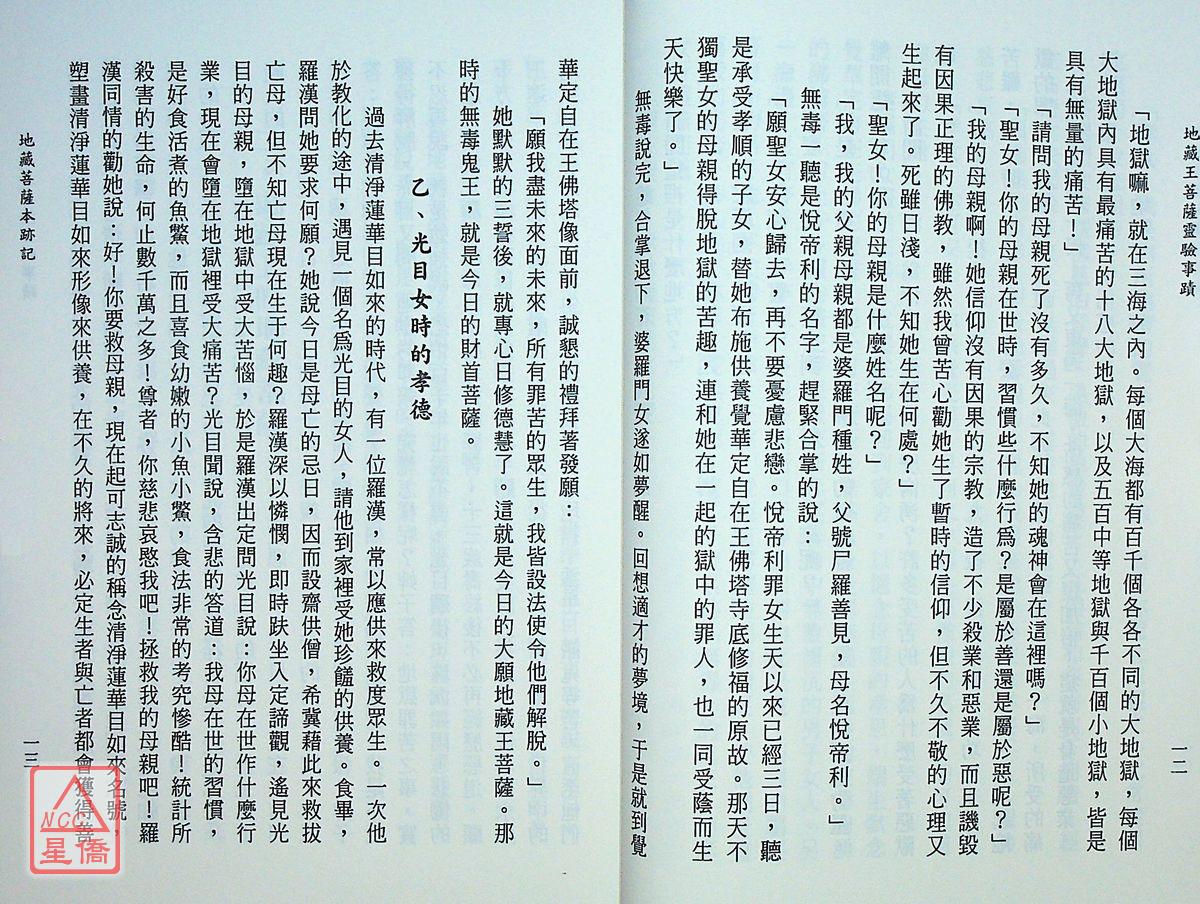 地藏王菩薩靈驗事蹟
「地獄嘛，就在三海之內。每個大海都有百千個各各不同的大地獄，每個
大地獄內具有最痛苦的十八大地獄，以及五百中等地獄與千百個小地獄，皆是
具有無量的痛苦！」
「請問我的母親死了沒有多久，不知她的魂神會在這裡嗎？」
「聖女！你的母親在世時，習慣些什麼行為？是屬於善還是屬於惡呢？」
「我的母親啊！她信仰沒有因果的宗教，造了不少殺業和惡業，而且譏毀
有因果正理的佛教，雖然我曾苦心勸她生了暫時的信仰，但不久不敬的心理又
生起來了。死雖日淺，不知她生在何處？」
「聖女！你的母親是什麼姓名呢？」
「我，我的父親母親都是婆羅門種姓，父號尸羅善見，母名悅帝利。」
無毒一聽是悅帝利的名字，趕緊合掌的說：
「願聖女安心歸去，再不要憂慮悲戀。悅帝利罪女生天以來已經三日，聽
是承受孝順的子女，替她布施供養覺華定自在王佛塔寺底修福的原故。那天不
獨聖女的母親得脫地獄的苦趣，連和她在一起的獄中的罪人，也一同受蔭而生
天快樂了。」
無毒說完，合掌退下，婆羅門女遂如夢醒。回想適才的夢境，于是就到覺
一二
華定自在王佛塔像面前，誠懇的禮拜著發願：
「願我盡未來的未來，所有罪苦的眾生，我皆設法使令他們解脫。」
她默默的三誓後，就專心日修德慧了。這就是今日的大願地藏王菩薩。那
時的無毒鬼王，就是今日的財首菩薩。
乙、光目女時的孝德
過去清淨蓮華目如來的時代，有一位羅漢，常以應供來救度眾生。一次他
於教化的途中，遇見一個名為光目的女人，請他到家裡受她珍饈的供養。食畢，
羅漢問她要求何願？她說今日是母亡的忌日，因而設齋供僧，希冀藉此來救拔
亡母，但不知亡母現在生于何趣？羅漢深以憐憫，即時趺坐入定諦觀，遙見光
目的母親，墮在地獄中受大苦惱，於是羅漢出定問光目說：你母在世作什麼行
業，現在會墮在地獄裡受大痛苦？光目聞說，含悲的答道：我母在世的習慣，
是好食活煮的魚鱉，而且喜食幼嫩的小魚小鱉，食法非常的考究慘酷，統計所
殺害的生命，何止數千萬之多！尊者，你慈悲哀愍我吧！拯救我的母親吧！羅
漢同情的勸她說：好！你要救母親，現在起可志誠的稱念清淨蓮華目如來名號，
塑畫清淨蓮華目如來形像來供養，在不久的將來，必定生者與亡者都會獲得善
地藏菩薩本跡記
一三
NCC
星僑